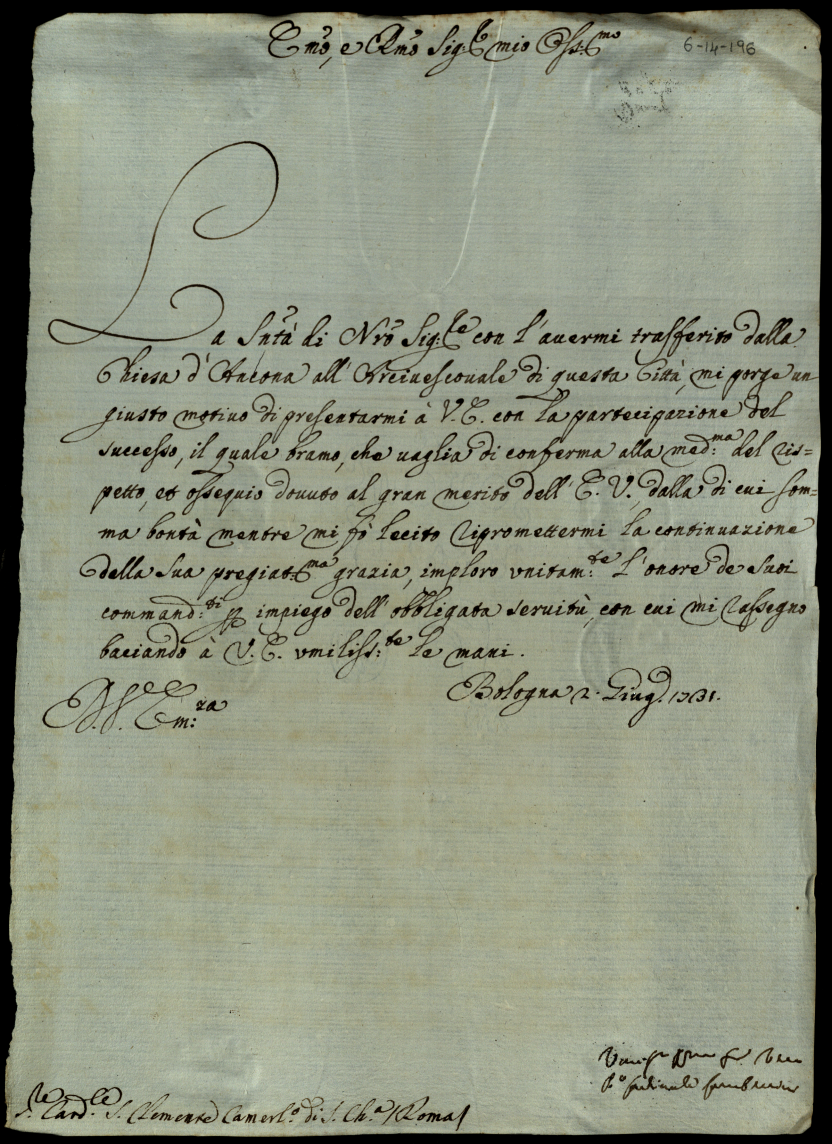 Emo, e Rmo Sig:r mio Oss:mo
6-14-196
La Sntà di Nrõ Sig:re con l'avermi trasferito dalla
Chiesa d'Ancona all'Arcivescovale di questa Città, mi porge un
giusto motivo di presentarmi à V.E. con la partecipazione del
successo, il quale bramo, che vaglia di conferma alla med:ma del ris=
petto, et ossequio dovuto al gran merito dell'E.V., dalla di cui som=
ma bontà mentre mi fò lecito ripromettermi la continuazione
della sua pregiat:ma grazia, imploro unitam:te l'onore de suoi
command:ti p impiego dell'obbligata servitù, con cui mi rassegno
baciando à V.E. umiliss:te le mani.
Bologna 2. Giug.o 1731.
Em:za
S.r Card.le S. Clemente Camerl.o di S. Ch.a / Roma /